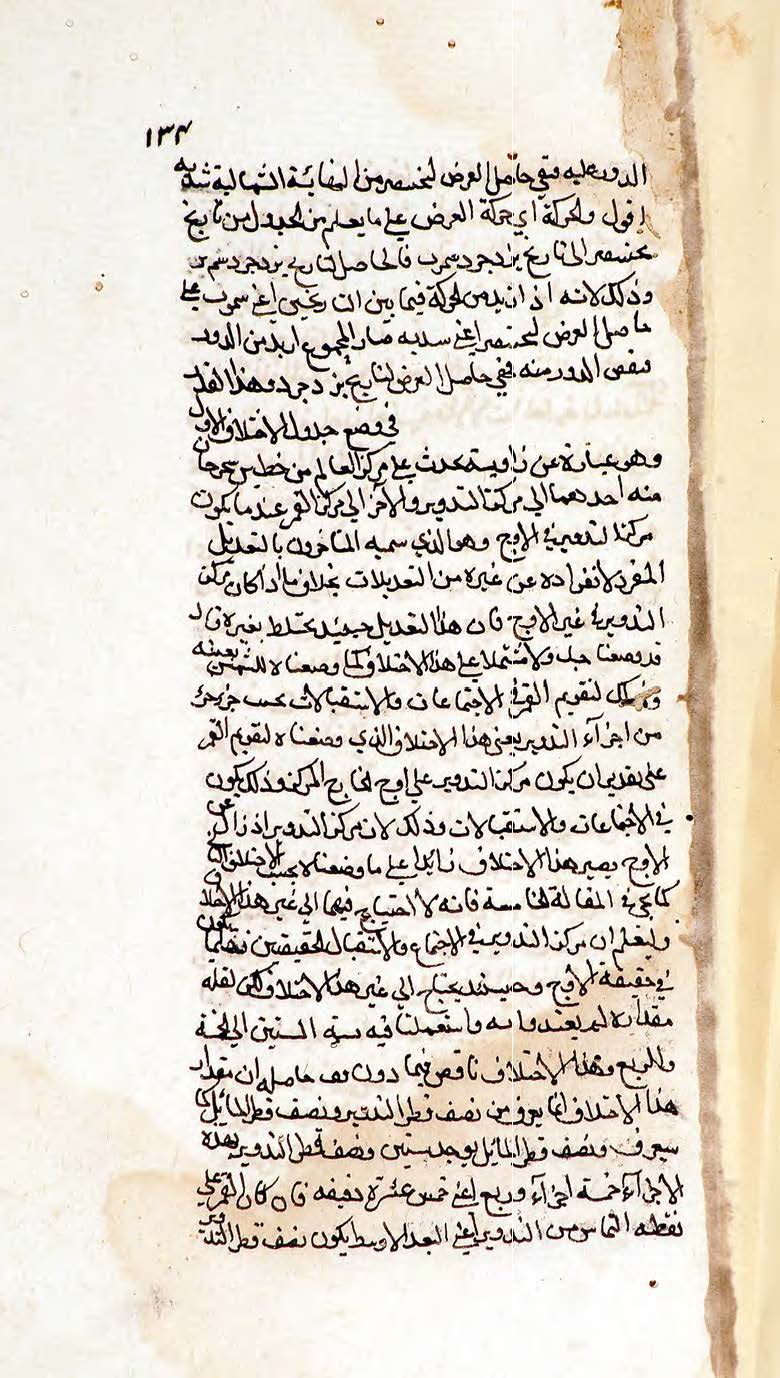 ١٣٤
الدور عليه فبقي حاصل العرض لبختنصر من النهاية الشمالية
اقول والحركة اي حركة العرض على ما يعلم من الجدول من تاريخ
بختنصر الى تاريخ يزدجرد فالحاصل لتاريخ يزدجرد
وذلك لانه اذا زيد من الحركة فيما بين التاريخين اعني على
حاصل العرض لبختنصر اعني صار المجموع ازيد من الدور
فنقص الدور منه فبقي حاصل العرض لتاريخ يزدجرد وهذا القدر
في وضع جدول الاختلاف الاول
وهو عبارة عن زاوية تحدث على مركز العالم من خطين يخرجان
منه احدهما الى مركز التدوير والآخر الى مركز القمر عند ما يكون
مركز التدوير في الاوج وهو الذي سميه المتاخرون بالتعديل
المفرد لانفراده عن غيره من التعديلات بخلاف ما اذا كان مركز
التدوير في غير الاوج فان هذا التعديل حينئذ يختلط بغيره قال
قد وضعنا جدولا مشتملا على هذا الاختلاف كما وضعناه للشمس بعينه
وذلك لتقويم القمر في الاجتماعات والاستقبالات بحسب جزء جزء
من اجزاء التدوير يعني هذا الاختلاف الذي وضعناه لتقويم القمر
على تقدير ان يكون مركز التدوير على اوج الخارج المركز وذلك يكون
في الاجتماعات والاستقبالات وذلك لان مركز التدوير اذا زال عن
الاوج يصير هذا الاختلاف زائدا على ما وضعناه بحسب الاختلاف
كما يجئ في المقالة الخامسة فانه لا احتياج فيهما الى غير هذا الاختلاف
وليعلم ان مركز التدوير في الاجتماع والاستقبال الحقيقين قلما يكون
في حقيقة الاوج وحينئذ يحتاج الى غير هذا الاختلاف لكن لقلة
مقداره لم يعتد به واستعملنا فيه نسبة الستين الى الخمسة
والربع وهذا الاختلاف ناقص فيما دون حاصله ان مقدار
هذا الاختلاف انما يعرف من نصف قطر التدوير ونصف قطر المائل كما
سيعرف ونصف قطر المائل يوجد ستين ونصف قطر التدوير بهذه
الاجزاء خمسة اجزاء وربع اعني خمس عشرة دقيقة فان كان القمر على
نقطة التماس من التدوير اعني البعد الاوسط يكون نصف قطر التدوير